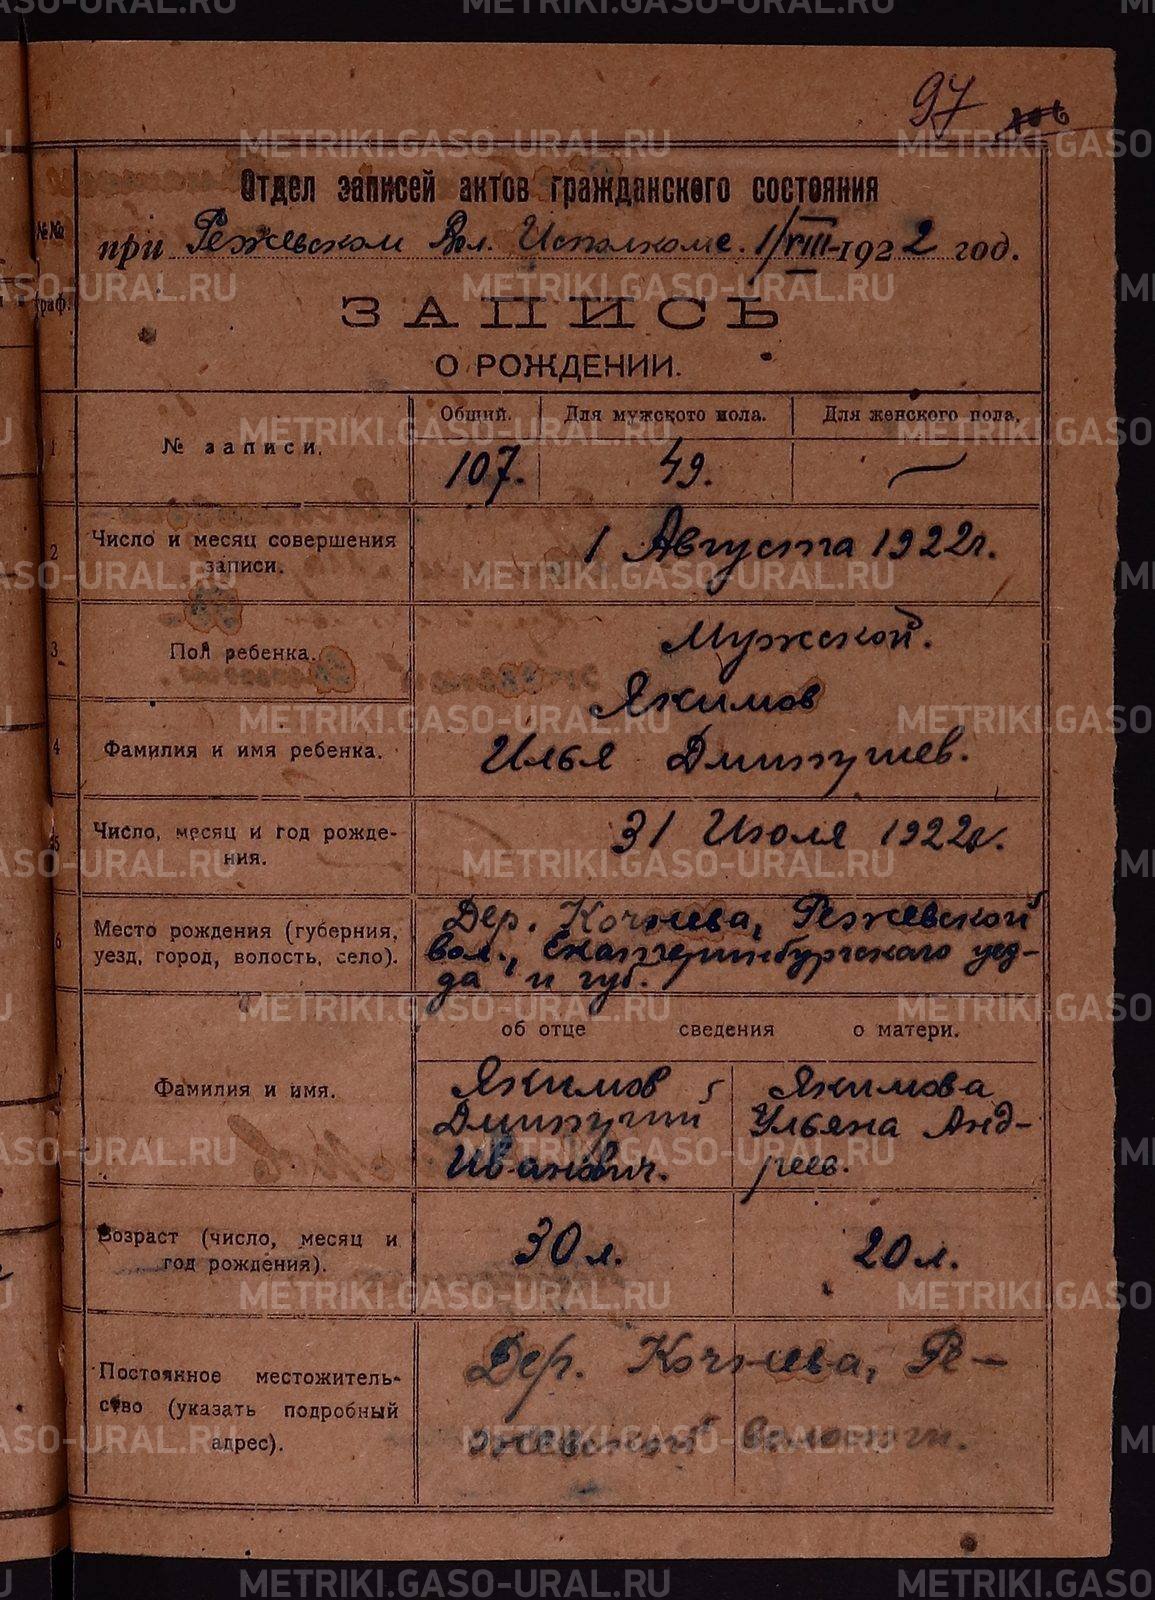 97 106
Отдел записей актов гражданского состояния
при Режевском Вол. Исполкоме. 1/VIII-1922 год.
ЗАПИСЬ
О РОЖДЕНИИ.
№№
граф.
Общий. Для мужского пола. Для женского пола.
1 № записи. 107. 49. —
2 Число и месяц совершения
записи.
1 Августа 1922г.
3 Пол ребенка.
Мужской.
4 Фамилия и имя ребенка.
Якимов
Илья Дмитриев.
5 Число, месяц и год рожде-
ния.
31 Июля 1922г.
6 Место рождения (губерния,
уезд, город, волость, село).
Дер. Кочнева, Режевской
вол., Екатеринбургского уез-
да и губ.
об отце сведения о матери.
7 Фамилия и имя.
Якимов
Дмитрий
Иванович.
Якимова
Ульяна Анд-
реев.
Возраст (число, месяц и
год рождения).
30 л. 20 л.
Постоянное местожитель-
ство (указать подробный
адрес).
Дер. Кочнева, Ре-
жевской волости.
METRIKI.GASO-URAL.RU